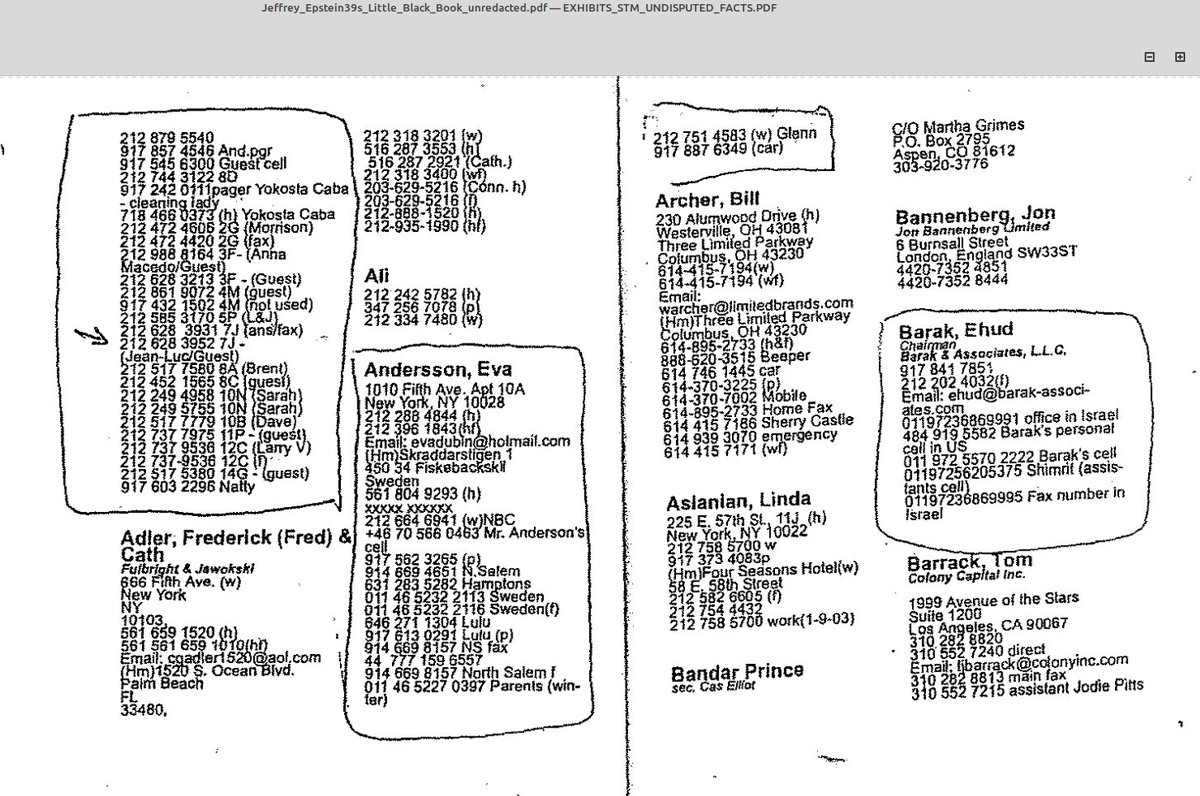 Jeffrey_Epstein39s_Little_Black_Book_unredacted.pdf — EXHIBITS_STM_UNDISPUTED_FACTS.PDF
212 879 5540
917 857 4546 And.pgr
917 545 6300 Guest cell
212 744 3122 8D
917 242 0111pager Yokosta Caba
- cleaning lady
718 466 0373 (h) Yokosta Caba
212 472 4606 2G (Morrison)
212 472 4420 2G (fax)
212 988 8164 3F- (Anna
Macedo/Guest)
212 628 3213 3F - (Guest)
212 861 9072 4M (guest)
917 432 1502 4M (not used)
212 585 3170 5P (L&J)
212 628 3931 7J (ans/fax)
212 628 3952 7J -
(Jean-Luc/Guest)
212 517 7580 8A (Brent)
212 452 1565 8C (guest)
212 249 4958 10N (Sarah)
212 249 5755 10N (Sarah)
212 517 7779 10B (Dave)
212 737 7975 11P - (guest)
212 737 9536 12C (Larry V)
212 737-9536 12C (f)
212 517 5380 14G - (guest)
917 603 2296 Natty
Adler, Frederick (Fred) &
Cath
Fulbright & Jawokski
666 Fifth Ave. (w)
New York
NY
10103,
561 659 1520 (h)
561 561 659 1010(hf)
Email: cgadler1520@aol.com
(Hm)1520 S. Ocean Blvd.
Palm Beach
FL
33480,
212 318 3201 (w)
516 287 3553 (h)
516 287 2921 (Cath.)
212 318 3400 (wf)
203-629-5216 (Conn. h)
203-629-5216 (f)
212-888-1520 (h)
212-935-1990 (hf)
Ali
212 242 5782 (h)
347 256 7078 (p)
212 334 7480 (w)
Andersson, Eva
1010 Fifth Ave. Apt 10A
New York, NY 10028
212 288 4844 (h)
212 396 1843(hf)
Email: evadubin@hotmail.com
(Hm)Skraddarstigen 1
450 34 Fiskebackskil
Sweden
561 804 9293 (h)
xxxxx xxxxxx
212 664 6941 (w)NBC
+46 70 566 0463 Mr. Anderson's
cell
917 562 3265 (p)
914 669 4651 N.Salem
631 283 5282 Hamptons
011 46 5232 2113 Sweden
011 46 5232 2116 Sweden(f)
646 271 1304 Lulu
917 613 0291 Lulu (p)
914 669 8157 NS fax
44 777 159 6557
914 669 8157 North Salem f
011 46 5227 0397 Parents (win-
ter)
212 751 4583 (w) Glenn
917 887 6349 (car)
Archer, Bill
230 Alumwood Drive (h)
Westerville, OH 43081
Three Limited Parkway
Columbus, OH 43230
614-415-7194(w)
614-415-7194 (wf)
Email:
warcher@limitedbrands.com
(Hm)Three Limited Parkway
Columbus, OH 43230
614-895-2733 (h&f)
888-620-3515 Beeper
614 746 1445 car
614-370-3225 (p)
614-370-7002 Mobile
614-895-2733 Home Fax
614 415 7186 Sherry Castle
614 939 3070 emergency
614 415 7171 (wf)
Aslanian, Linda
225 E. 57th St., 11J (h)
New York, NY 10022
212 758 5700 w
917 373 4083p
(Hm)Four Seasons Hotel(w)
58 E. 58th Street
212 582 6605 (f)
212 754 4432
212 758 5700 work(1-9-03)
Bandar Prince
sec. Cas Elliot
C/O Martha Grimes
P.O. Box 2795
Aspen, CO 81612
303-920-3776
Bannenberg, Jon
Jon Bannenberg Limited
6 Burnsall Street
London, England SW33ST
4420-7352 4851
4420-7352 8444
Barak, Ehud
Chairman
Barak & Associates, L.L.C.
917 841 7851
212 202 4032(f)
Email: ehud@barak-associ-
ates.com
01197236869991 office in Israel
484 919 5582 Barak's personal
cell in US
011 972 5570 2222 Barak's cell
0119725620​5375 Shimrit (assis-
tants cell)
01197236869995 Fax number in
Israel
Barrack, Tom
Colony Capital Inc.
1999 Avenue of the Stars
Suite 1200
Los Angeles, CA 90067
310 282 8820
310 552 7240 direct
Email: tjbarrack@colonyinc.com
310 282 8813 main fax
310 552 7215 assistant Jodie Pitts